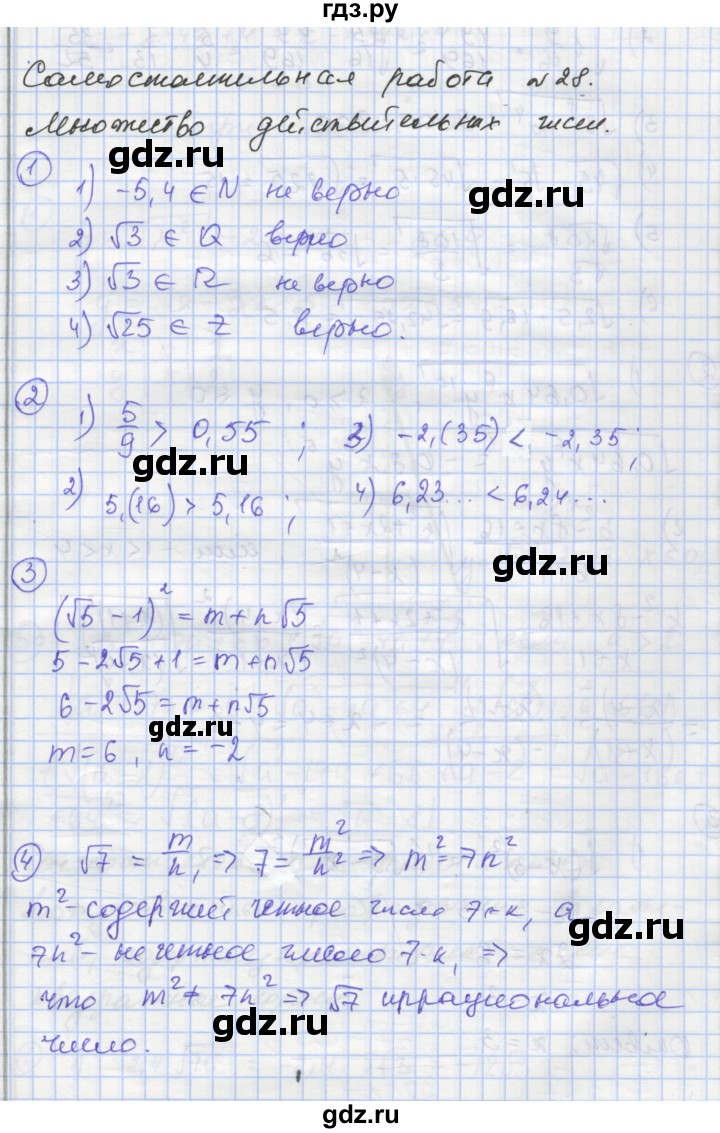 гдз.ру
Самостоятельная работа №28.
Множество действительных чисел.
gdz.ru
1
1) -5,4 ∈ N не верно
2) √3 ∈ Q верно
gdz.ru
3) √3 ∈ R не верно
gdz.ru
4) √25 ∈ Z верно.
2
1) 5/9 > 0,55 ; 3) -2,(35) < -2,35;
gdz.ru
2) 5,(16) > 5,16 ; 4) 6,23... < 6,24...
gdz.ru
3
(√5 - 1)² = m + n√5
5 - 2√5 + 1 = m + n√5
6 - 2√5 = m + n√5
gdz.ru
m = 6, n = -2
gdz.ru
4
√7 = m/n, => 7 = m²/n² => m² = 7n²
m² - содержит четное число 7-к, а
gdz.ru
7n² - нечетное число 7-к, =>
что m² ≠ 7n² => √7 иррациональное
gdz.ru
число.
gdz.ru